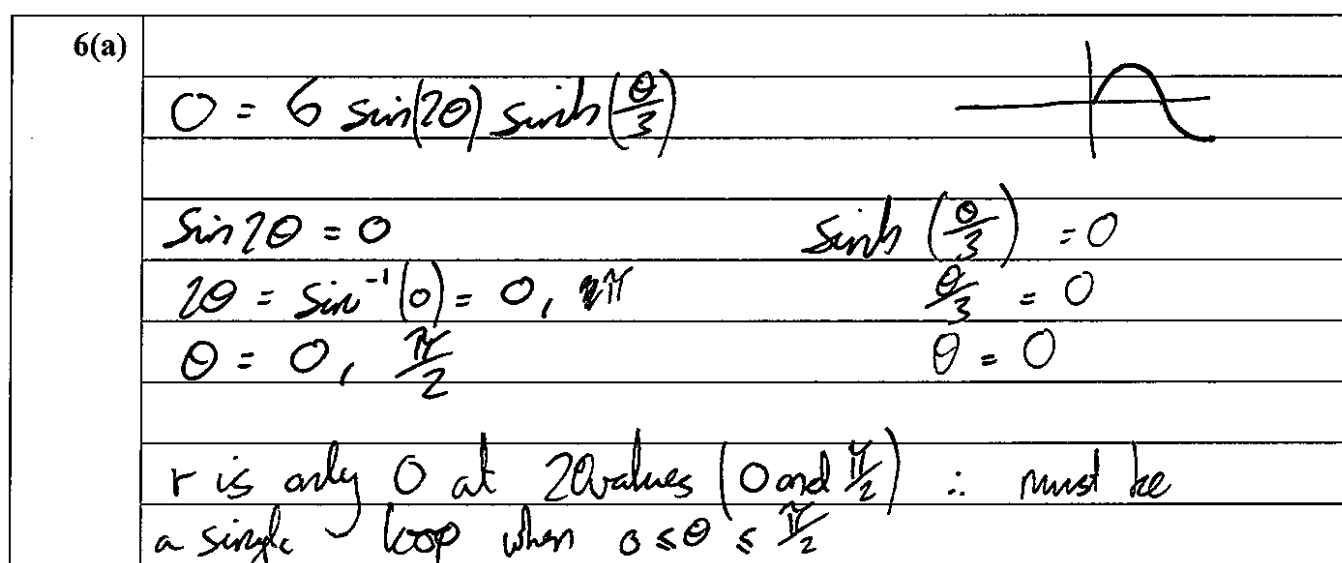 6(a)
0 = 6 sin(2θ) sinh(θ/3)
sin2θ = 0 sinh (θ/3) = 0
2θ = sin⁻¹(0) = 0, π θ/3 = 0
θ = 0, π/2 θ = 0
r is only 0 at 2 θ values (0 and π/2) ∴ must be
a single loop when 0 ≤ θ ≤ π/2